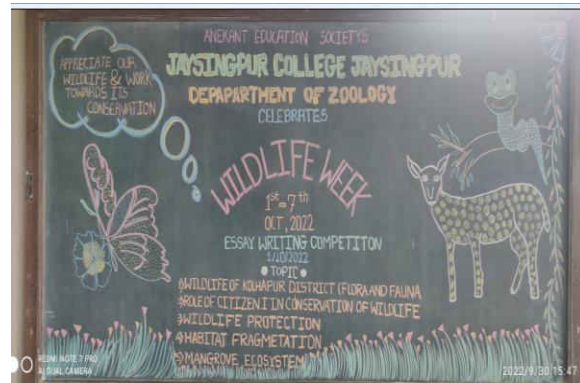 ANEKANT EDUCATION SOCIETYS
JAYSINGPUR COLLEGE JAYSINGPUR
DEPAPARTMENT OF ZOOLOGY
CELEBRATES
APPRECIATE OUR
WILDLIFE & WORK
TOWARDS ITS
CONSERVATION
WILDLIFE WEEK
1st - 7th
OCT, 2022
ESSAY WRITING COMPETITON
1/10/2022
TOPIC
1) WILDLIFE OF KOLHAPUR DISTRICT (FLORA AND FAUNA
2) ROLE OF CITIZEN I IN CONSERVATION OF WILDLIFE
3) WILDLIFE PROTECTION
4) HABITAT FRAGMETATION
5) MANGROVE ECOSYSTEM
REDMI NOTE 7 PRO
AI DUAL CAMERA
2022/9/30 15:47